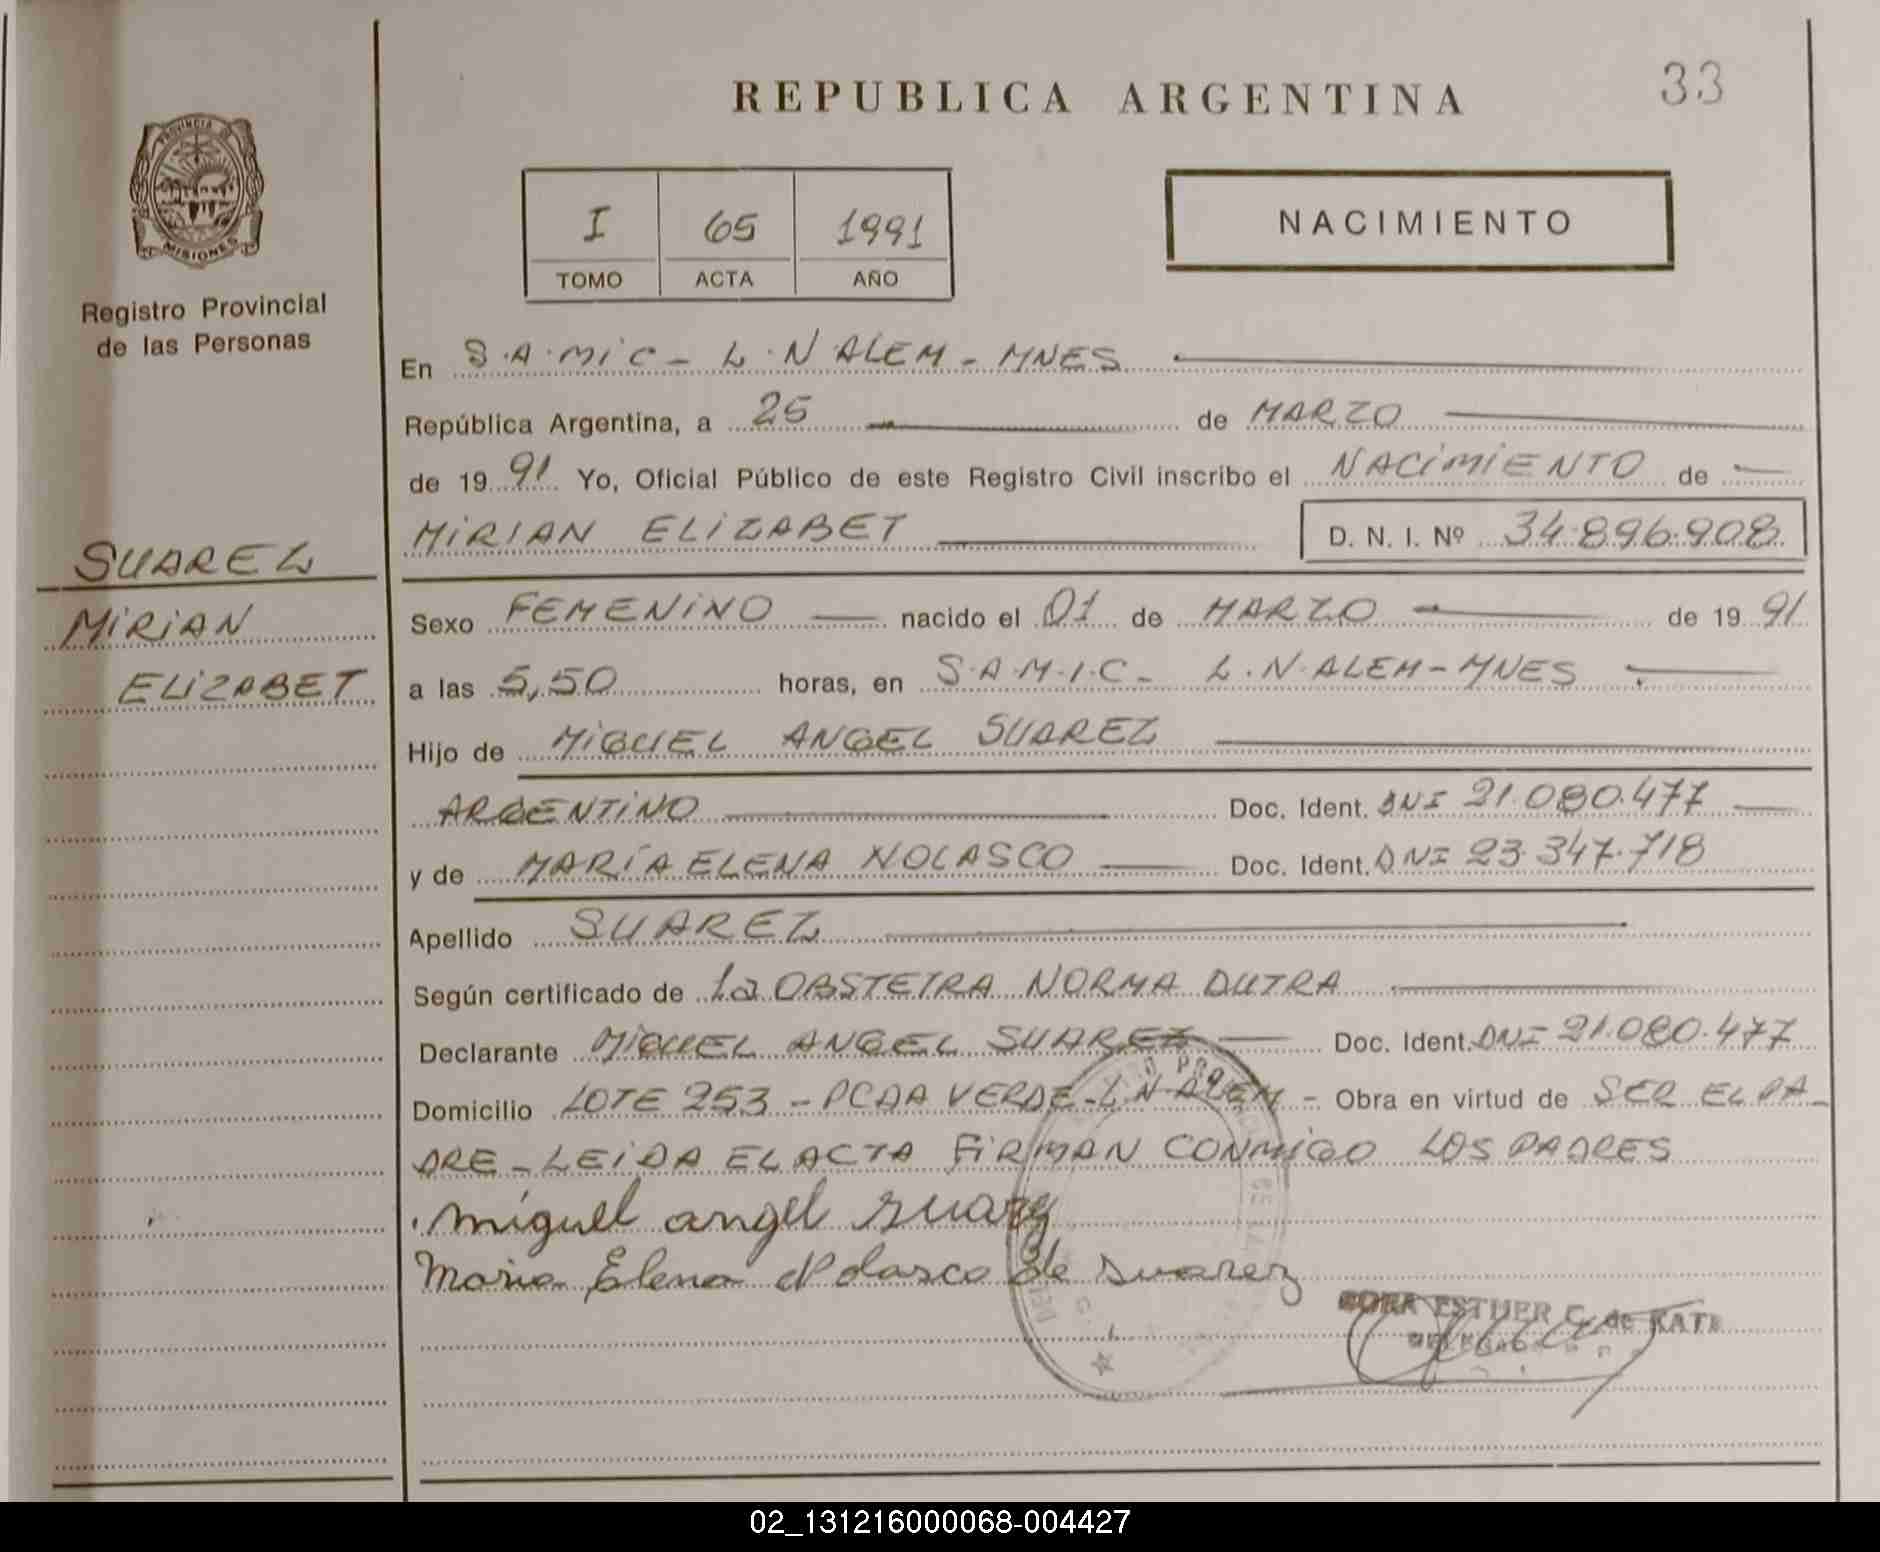 33
REPUBLICA ARGENTINA
PROVINCIA DE
MISIONES
Registro Provincial
de las Personas
I 65 1991
TOMO ACTA AÑO
NACIMIENTO
En S.A.MiC - L.N.ALEM - MNES
República Argentina, a 25 de MARZO
de 19 91 Yo, Oficial Público de este Registro Civil inscribo el NACIMIENTO de
MIRIAN ELIZABET D. N. I. Nº 34.896.908
SUAREZ
MIRIAN
ELIZABET
Sexo FEMENINO nacido el 01 de MARZO de 19 91
a las 5,50 horas, en S.A.M.I.C - L.N.ALEM - MNES
Hijo de MIGUEL ANGEL SUAREZ
ARGENTINO Doc. Ident. DNI 21.080.477
y de MARÍA ELENA NOLASCO Doc. Ident. DNI 23.347.718
Apellido SUAREZ
Según certificado de La OBSTETRA NORMA DUTRA
Declarante MIGUEL ANGEL SUAREZ Doc. Ident. DNI 21.080.477
Domicilio LOTE 253 - PCDA VERDE - L N ALEM - Obra en virtud de SER EL PA-
DRE - LEIDA EL ACTA FIRMAN CONMIGO LOS PADRES
miguel angel suarez
Maria Elena Nolasco de Suarez
ESTHER C. de KATZ
02_131216000068-004427